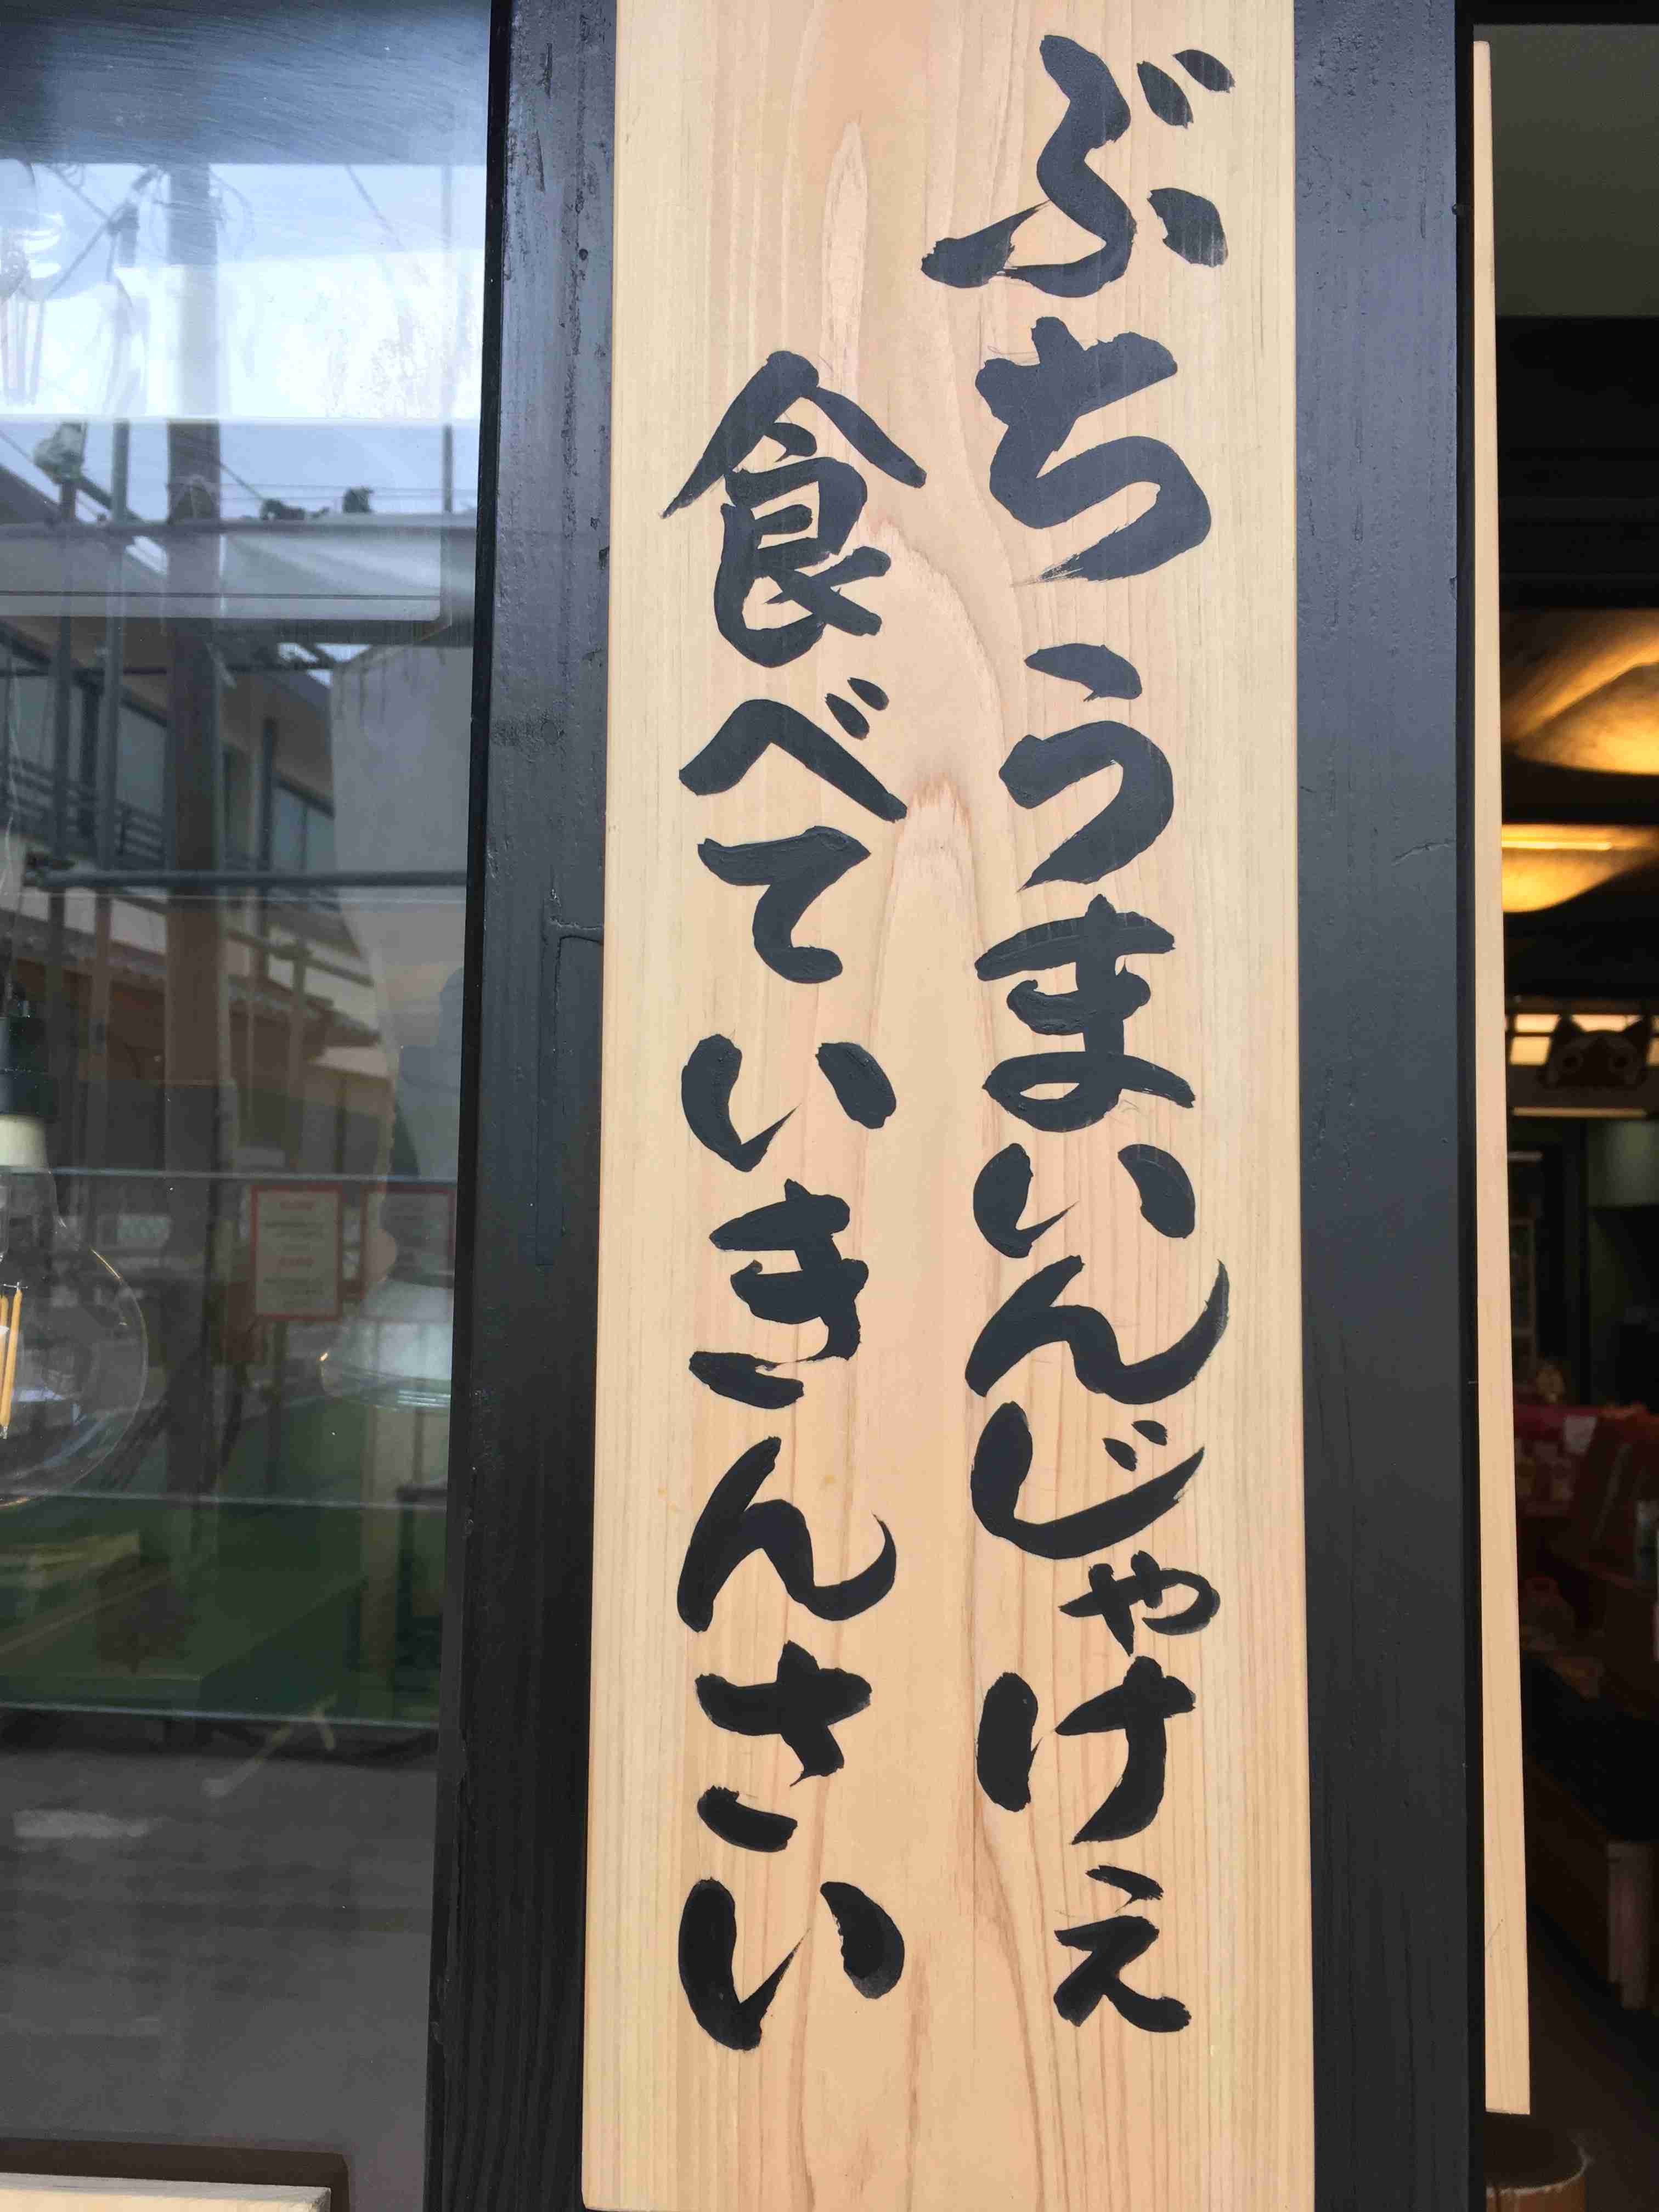 ぶちうまいんじゃけぇ
食べていきんさい